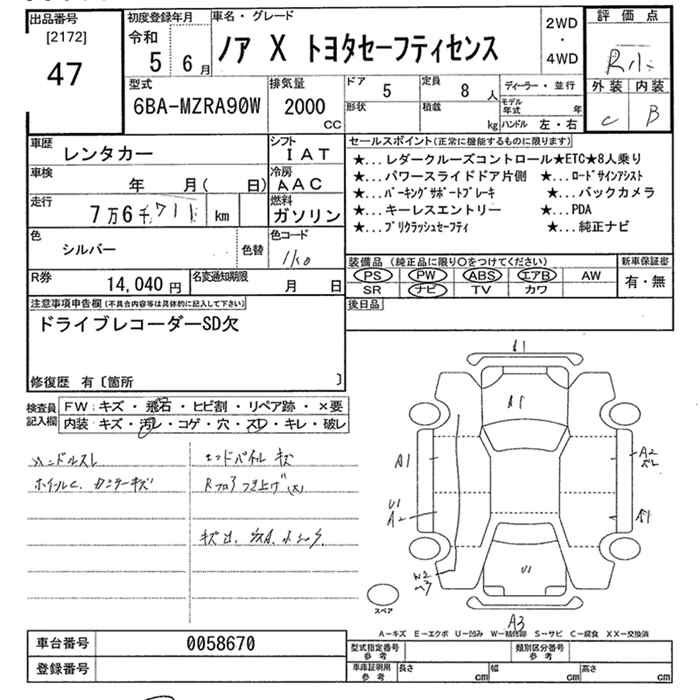 出品番号
[2172]
47
初度登録年月
令和
5 6月
車名・グレード
ノア X トヨタセーフティセンス
2WD
・
4WD
評価点
R
外装 内装
C B
型式
6BA-MZRA90W
排気量
2000
CC
ドア
5
定員
8 人
形状
積載
kg
ディーラー・並行
モデル年式 年
ハンドル 左・右
車歴
レンタカー
シフト
IAT
車検
年 月( 日)
冷房
AAC
走行
7万6千711 km
燃料
ガソリン
色
シルバー
色替
色コード
1K0
R券
14,040 円
名変通知期限
月 日
セールスポイント(正常に機能するものに限ります)
★...レダークルーズコントロール★ETC★8人乗り
★...パワースライドドア片側 ★...ロードサインアシスト
★...パーキングサポートブレーキ ★...バックカメラ
★...キーレスエントリー ★...PDA
★...プリクラッシュセーフティ ★...純正ナビ
装備品 (純正品に限り○をつけてください)
PS PW ABS エアB AW
SR ナビ TV カワ
新車保証書
有・無
後日品
注意事項申告欄(不具合内容等は具体的に記入して下さい)
ドライブレコーダーSD欠
修復歴 有〔箇所 〕
検査員記入欄
FW:キズ・飛石・ヒビ割・リペア跡・×要
内装:キズ・汚レ・コゲ・穴・スレ・キレ・破レ
ハンドルスレ
ホイルC、カンターキズ
エンドパネル キズ
Rフロアつき上げ(大)
A1
A1
A1
A2
U1
A2
A1
W2
U1
A3
スペア
A-キズ E-エクボ U-凹み W-補修跡 S-サビ C-腐食 XX-交換済
車台番号
0058670
登録番号
型式指定番号
参考
類別区分番号
参考
車庫証明用
参考
長さ cm
幅 cm
高さ cm